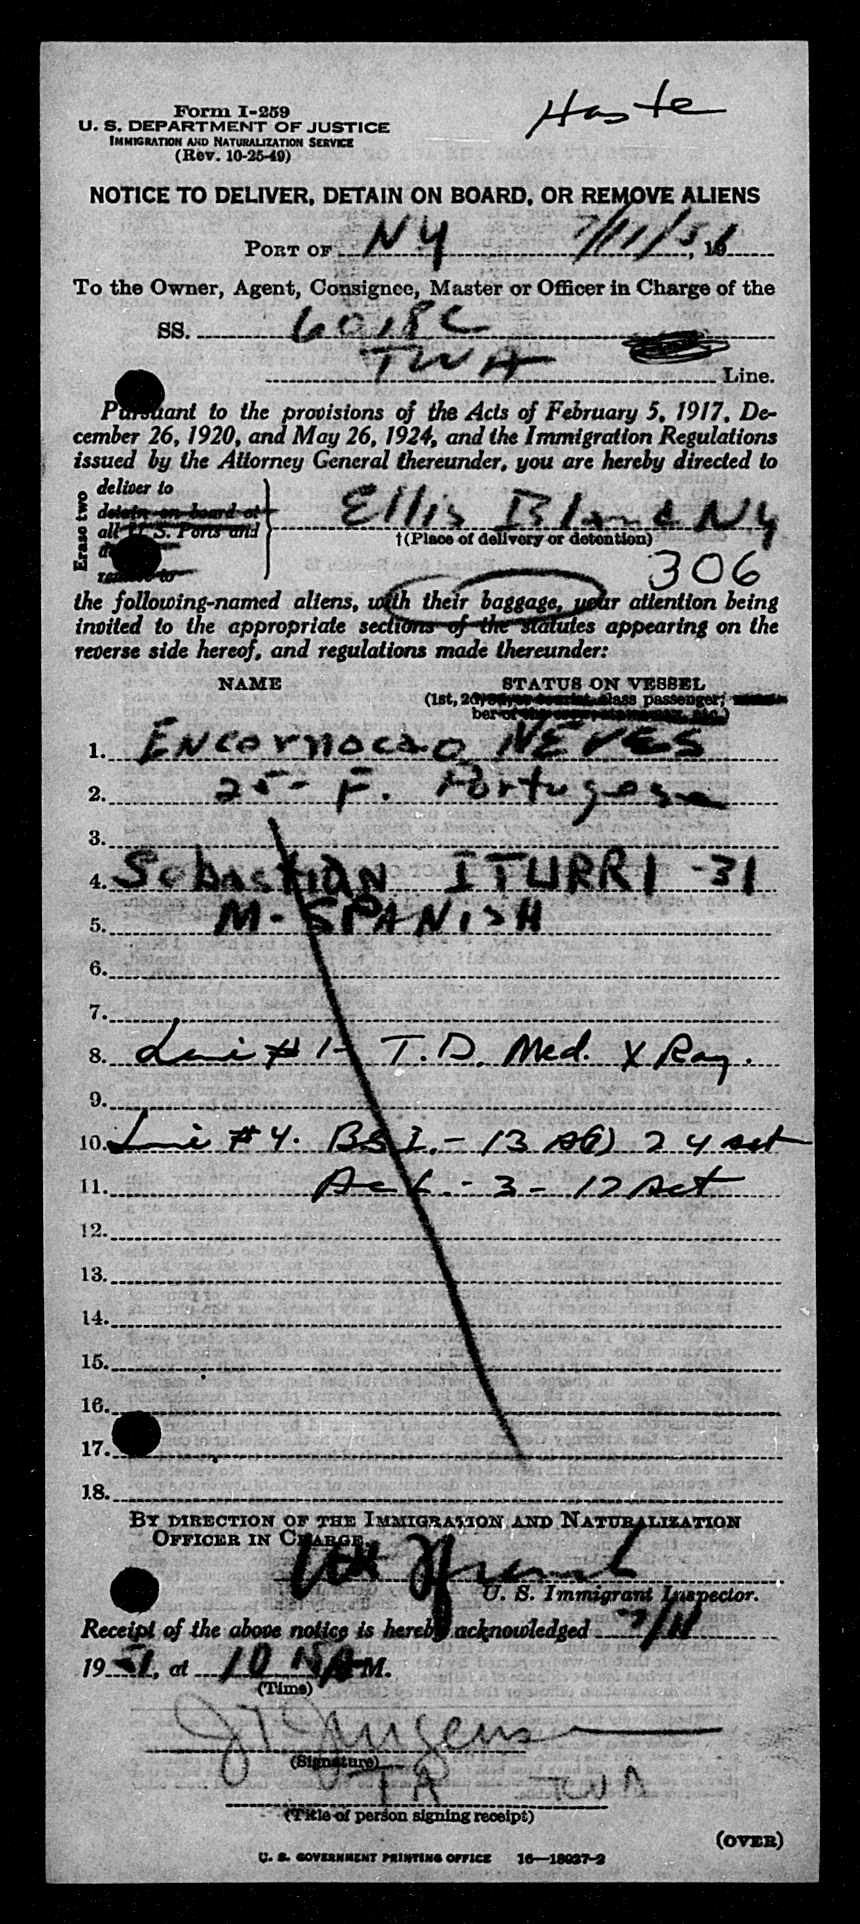 Form I-259
Haste
U. S. DEPARTMENT OF JUSTICE
IMMIGRATION AND NATURALIZATION SERVICE
(Rev. 10-25-49)
NOTICE TO DELIVER, DETAIN ON BOARD, OR REMOVE ALIENS
PORT OF NY 7/11/51, 19
To the Owner, Agent, Consignee, Master or Officer in Charge of the
SS. 6018C
TWA Line.
Pursuant to the provisions of the Acts of February 5, 1917, De-
cember 26, 1920, and May 26, 1924, and the Immigration Regulations
issued by the Attorney General thereunder, you are hereby directed to
Erase two
deliver to
detain on board at
all U. S. Ports and
remove to
Ellis Island NY
†(Place of delivery or detention)
306
the following-named aliens, with their baggage, your attention being
invited to the appropriate sections of the statutes appearing on the
reverse side hereof, and regulations made thereunder:
NAME STATUS ON VESSEL
(1st, 2d, class passenger;
ber of
1. Encarnacao NEVES
2. 25- F. Portugese
3.
4. Sebastian ITURRI -31
5. M- SPANISH
6.
7.
8. Line #1- T.D. Med. X Ray.
9.
10. Line #4. BSI.- 13 A(1) 24 act
11. Act.- 3- 17 Act
12.
13.
14.
15.
16.
17.
18.
BY DIRECTION OF THE IMMIGRATION AND NATURALIZATION
OFFICER IN CHARGE,
U. S. Immigrant Inspector.
Receipt of the above notice is hereby acknowledged 7/11
19 51, at 10 15 A M.
(Time)
J Jurgensen
(Signature)
TA TWA
(Title of person signing receipt)
(OVER)
U. S. GOVERNMENT PRINTING OFFICE 16—18037-2